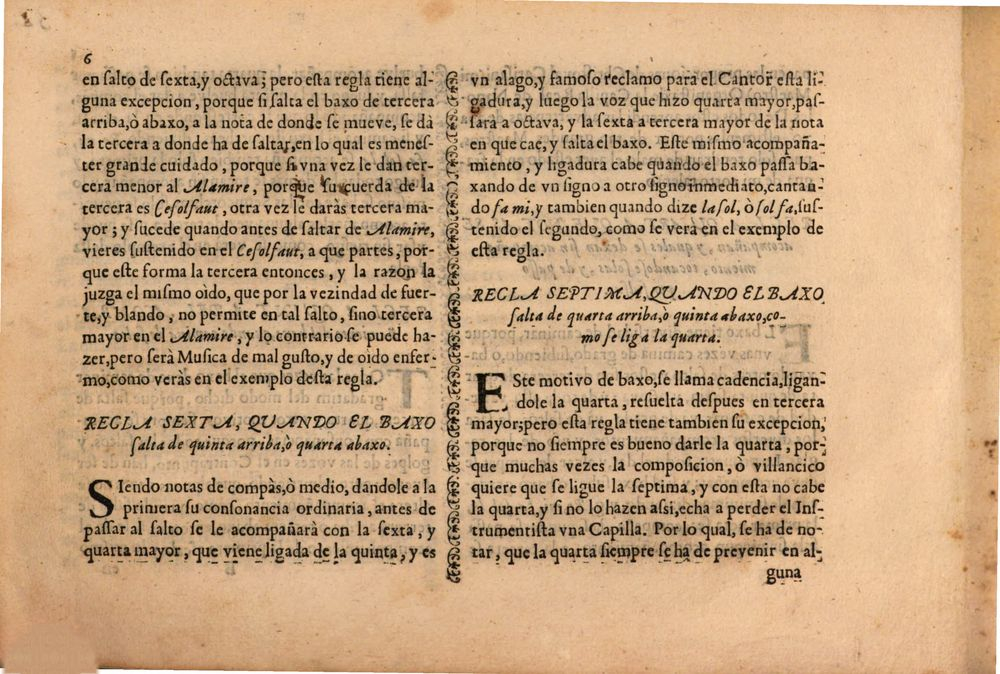 6
en salto de sexta,y octava; pero esta regla tiene al-
guna excepcion, porque si salta el baxo de tercera
arriba,ò abaxo, a la nota de donde se mueve, se dà
la tercera a donde ha de saltar,en lo qual es menes-
ter grande cuidado, porque si vna vez le dan ter-
cera menor al Alamire, porque su cuerda de la
tercera es Cesolfaut, otra vez le daràs tercera ma-
yor; y sucede quando antes de saltar de Alamire,
vieres sustenido en el Cesolfaut, a que partes, por-
que este forma la tercera entonces, y la razon la
juzga el mismo oìdo, que por la vezindad de fuer-
te,y blando, no permite en tal salto, sino tercera
mayor en el Alamire, y lo contrario se puede ha-
zer,pero serà Musica de mal gusto,y de oido enfer-
mo,como veràs en el exemplo desta regla.
RECLA SEXTA, QUANDO EL BAXO
salta de quinta arriba,ò quarta abaxo.
SIendo notas de compàs,ò medio, dandole a la
primera su consonancia ordinaria, antes de
passar al salto se le acompañarà con la sexta, y
quarta mayor, que viene ligada de la quinta, y es
vn alago,y famoso reclamo para el Cantor esta li-
gadura,y luego la voz que hizo quarta mayor,pas-
sarà a octava, y la sexta a tercera mayor de la nota
en que cae, y salta el baxo. Este mismo acompaña-
miento, y ligadura cabe quando el baxo passa ba-
xando de vn signo a otro signo inmediato,cantan-
do fa mi,y tambien quando dize la sol, ò sol fa,sus-
tenido el segundo, como se verà en el exemplo de
esta regla.
RECLA SEPTIMA, QUANDO EL BAXO
salta de quarta arriba,ò quinta abaxo,co-
mo se liga la quarta.
ESte motivo de baxo,se llama cadencia,ligan-
dole la quarta, resuelta despues en tercera
mayor;pero esta regla tiene tambien su excepcion,
porque no siempre es bueno darle la quarta, por-
que muchas vezes la composicion, ò villancico
quiere que se ligue la septima, y con esta no cabe
la quarta,y si no lo hazen assi,echa a perder el Ins-
trumentista vna Capilla. Por lo qual, se ha de no-
tar, que la quarta siempre se ha de prevenir en al-
guna